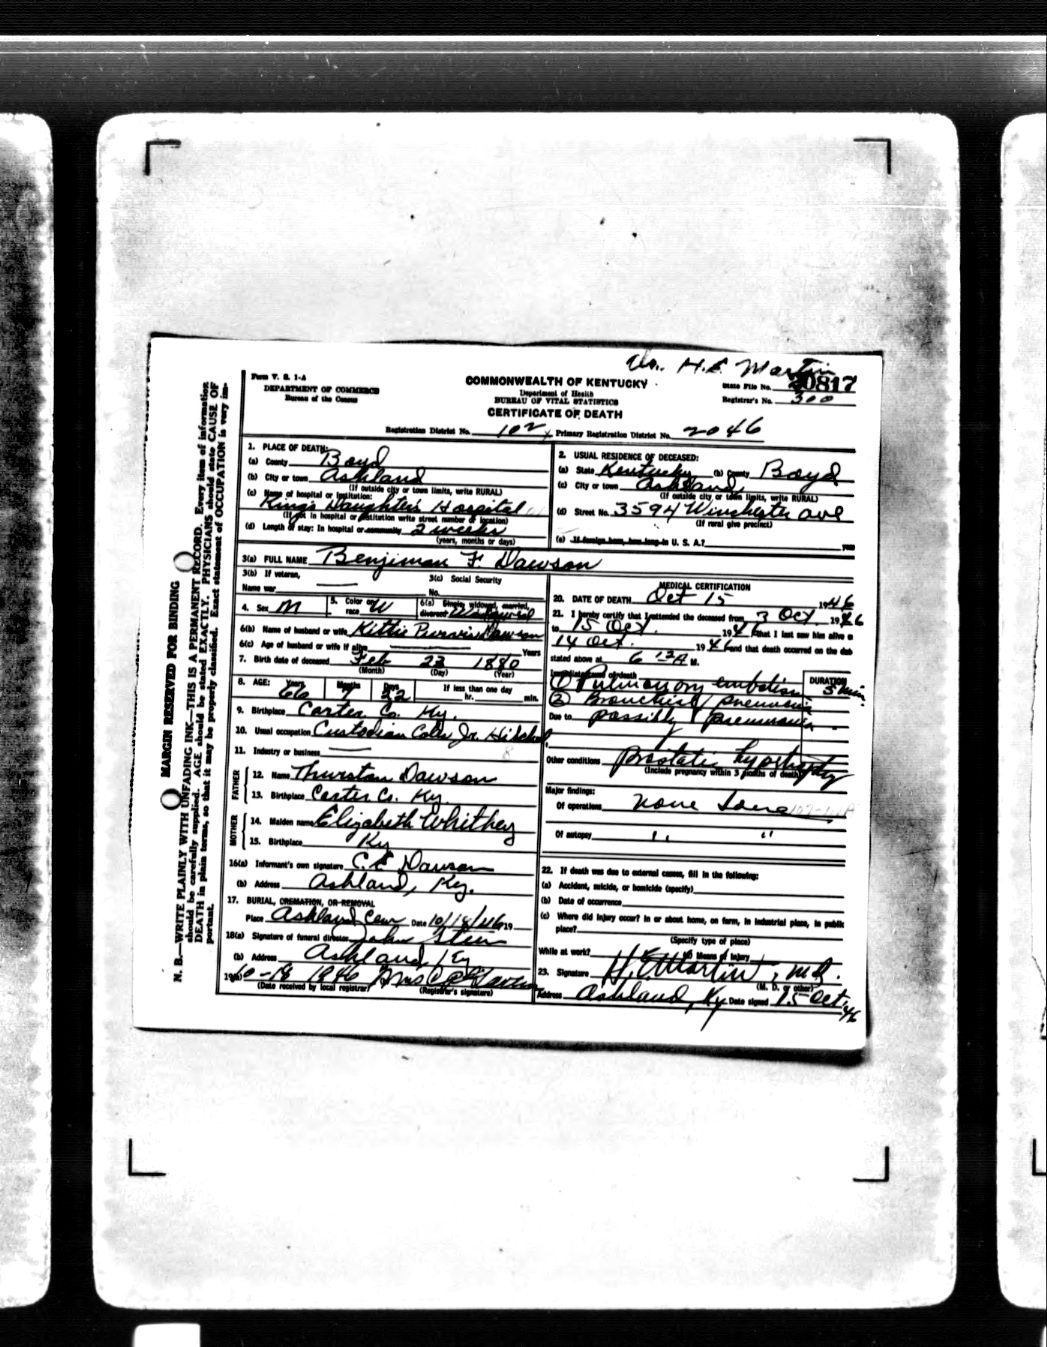 Dr. H.E. Martin
Form V. S. 1-A
DEPARTMENT OF COMMERCE
Bureau of the Census
COMMONWEALTH OF KENTUCKY
Department of Health
BUREAU OF VITAL STATISTICS
CERTIFICATE OF DEATH
State File No. 20817
Registrar's No. 300
Registration District No. 102 Primary Registration District No. 2046
MARGIN RESERVED FOR BINDING
N. B.—WRITE PLAINLY WITH UNFADING INK—THIS IS A PERMANENT RECORD. Every item of information
should be carefully supplied. AGE should be stated EXACTLY. PHYSICIANS should state CAUSE OF
DEATH in plain terms, so that it may be properly classified. Exact statement of OCCUPATION is very im-
portant.
1. PLACE OF DEATH:
(a) County Boyd
(b) City or town Ashland
(If outside city or town limits, write RURAL)
(c) Name of hospital or institution:
King's Daughters Hospital
(If not in hospital or institution write street number or location)
(d) Length of stay: In hospital or community 2 weeks
(years, months or days)
2. USUAL RESIDENCE OF DECEASED:
(a) State Kentucky (b) County Boyd
(c) City or town Ashland
(If outside city or town limits, write RURAL)
(d) Street No. 3594 Winchester Ave
(If rural give precinct)
(e) If foreign born, how long in U. S. A.? years
3(a) FULL NAME Benjiman F. Dawson
3(b) If veteran,
Name war
3(c) Social Security
No.
4. Sex M
5. Color or
race W
6(a) Single, widowed, married,
divorced Widowed
6(b) Name of husband or wife Kittie Dawson
6(c) Age of husband or wife if alive Years
7. Birth date of deceased Feb 23 1880
(Month) (Day) (Year)
8. AGE: Years Months Days If less than one day
66 7 22 hr. min.
9. Birthplace Carter Co. Ky.
10. Usual occupation Custodian Coles Jr. Hi School
11. Industry or business
FATHER
12. Name Thurstan Dawson
13. Birthplace Carter Co. Ky
MOTHER
14. Maiden name Elizabeth Whithey
15. Birthplace Ky
16(a) Informant's own signature C.E. Dawson
(b) Address Ashland, Ky.
17. BURIAL, CREMATION, OR REMOVAL
Place Ashland Cem Date 10/18/46 19
18(a) Signature of funeral director John Steen
(b) Address Ashland, Ky
19(a) 10-18 1946 Mrs
(Date received by local registrar) (Registrar's signature)
MEDICAL CERTIFICATION
20. DATE OF DEATH Oct 15 1946
21. I hereby certify that I attended the deceased from 3 Oct 1946
to 15 Oct. 1946 that I last saw him alive on
14 Oct. 1946 and that death occurred on the date
stated above at 6 12A M.
Immediate cause of death DURATION
(1) Pulmonary embolism 5 min.
(2) Bronchial pneumonia
Due to possibly pneumonia
Other conditions Prostatic hypertrophy
(Include pregnancy within 3 months of death)
Major findings:
Of operations none done
Of autopsy " "
22. If death was due to external causes, fill in the following:
(a) Accident, suicide, or homicide (specify)
(b) Date of occurrence
(c) Where did injury occur? In or about home, on farm, in industrial place, in public
place?
(Specify type of place)
While at work? (e) Means of injury
23. Signature H.E. Martin, M.D.
(M. D. or other)
Address Ashland, Ky Date signed 15 Oct, 46